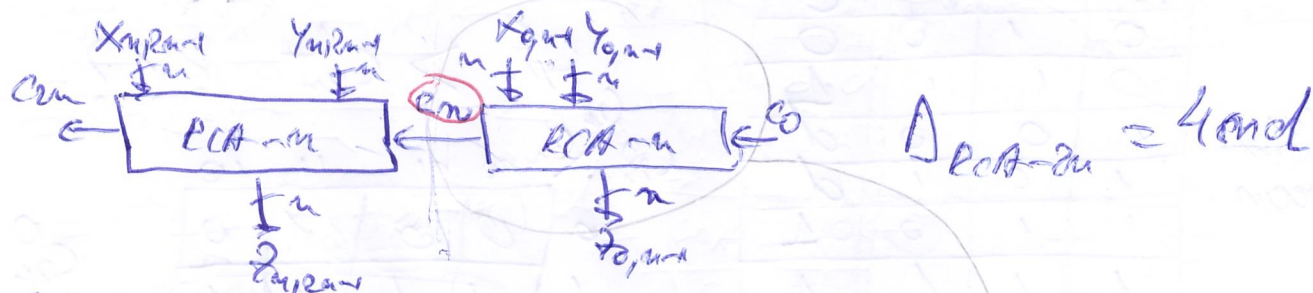 Xn,2n-1 Yn,2n-1 X0,n-1 Y0,n-1
n n n n
C2n RCA-n Cn RCA-n C0 Δ RCA-2n = 4nd
n n
Zn,2n-1 Z0,n-1